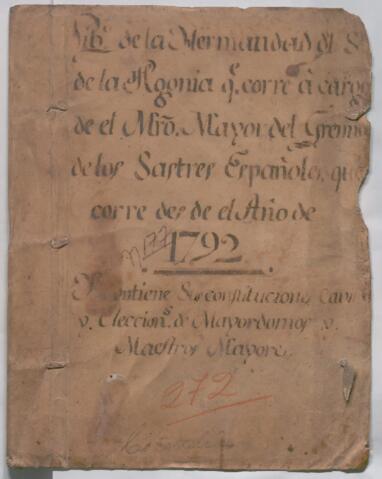 Libº de la Hermandad del S
de la Agonia q. corre à cargo
de el Mrò. Mayor del Gremio
de los Sastres Españoles, que
corre desde el Año de
1792
Contiene Sus constituciones Cavi
y Eleccion.s de Mayordomos y
Maestros Mayores
272